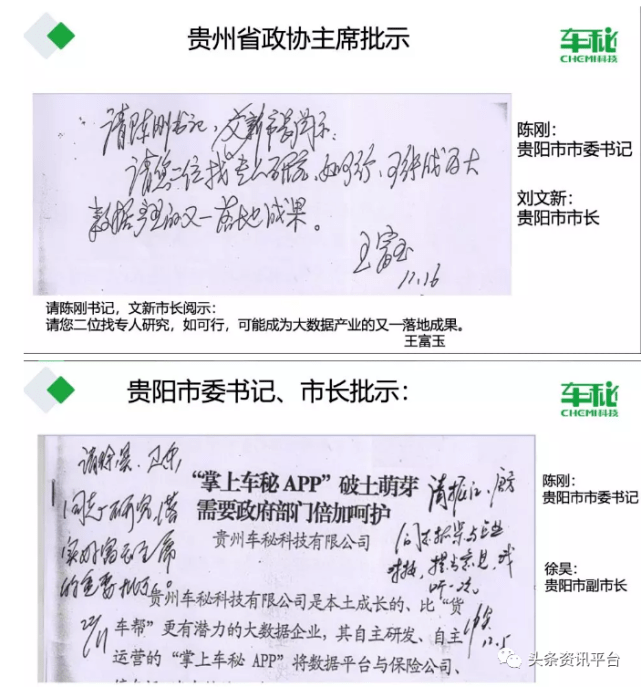 贵州省政协主席批示
车秘
CHEMI科技
请陈刚书记，文新市长阅示：
请您二位找专人研究，如可行，可能成为大
数据产业的又一落地成果。
王富玉
11.16
陈刚：
贵阳市市委书记
刘文新：
贵阳市市长
请陈刚书记，文新市长阅示：
请您二位找专人研究，如可行，可能成为大数据产业的又一落地成果。
王富玉
贵阳市委书记、市长批示：
车秘
CHEMI科技
同志研究，落
实好富玉主席
的重要批示。
22/11
“掌上车秘APP”破土萌芽
需要政府部门倍加呵护
贵州车秘科技有限公司
贵州车秘科技有限公司是本土成长的、比“货
车帮”更有潜力的大数据企业，其自主研发、自主
运营的“掌上车秘APP”将数据平台与保险公司、
陈刚：
贵阳市市委书记
徐昊：
贵阳市副市长
头条资讯平台